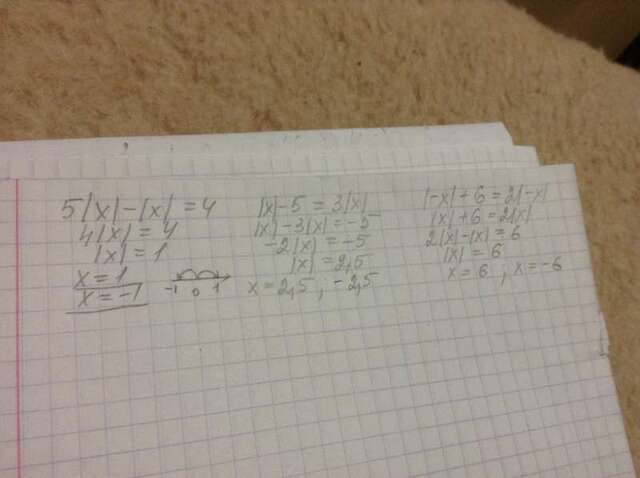 5|x|-|x| = 4
4|x| = 4
|x| = 1
x = 1
x = -1
-1 0 1
|x|-5 = 3|x|
|x|-3|x| = -5
-2|x| = -5
|x| = 2,5
x = 2,5 ; -2,5
|-x|+6 = 2|-x|
|x|+6 = 2|x|
2|x|-|x| = 6
|x| = 6
x = 6 ; x = -6